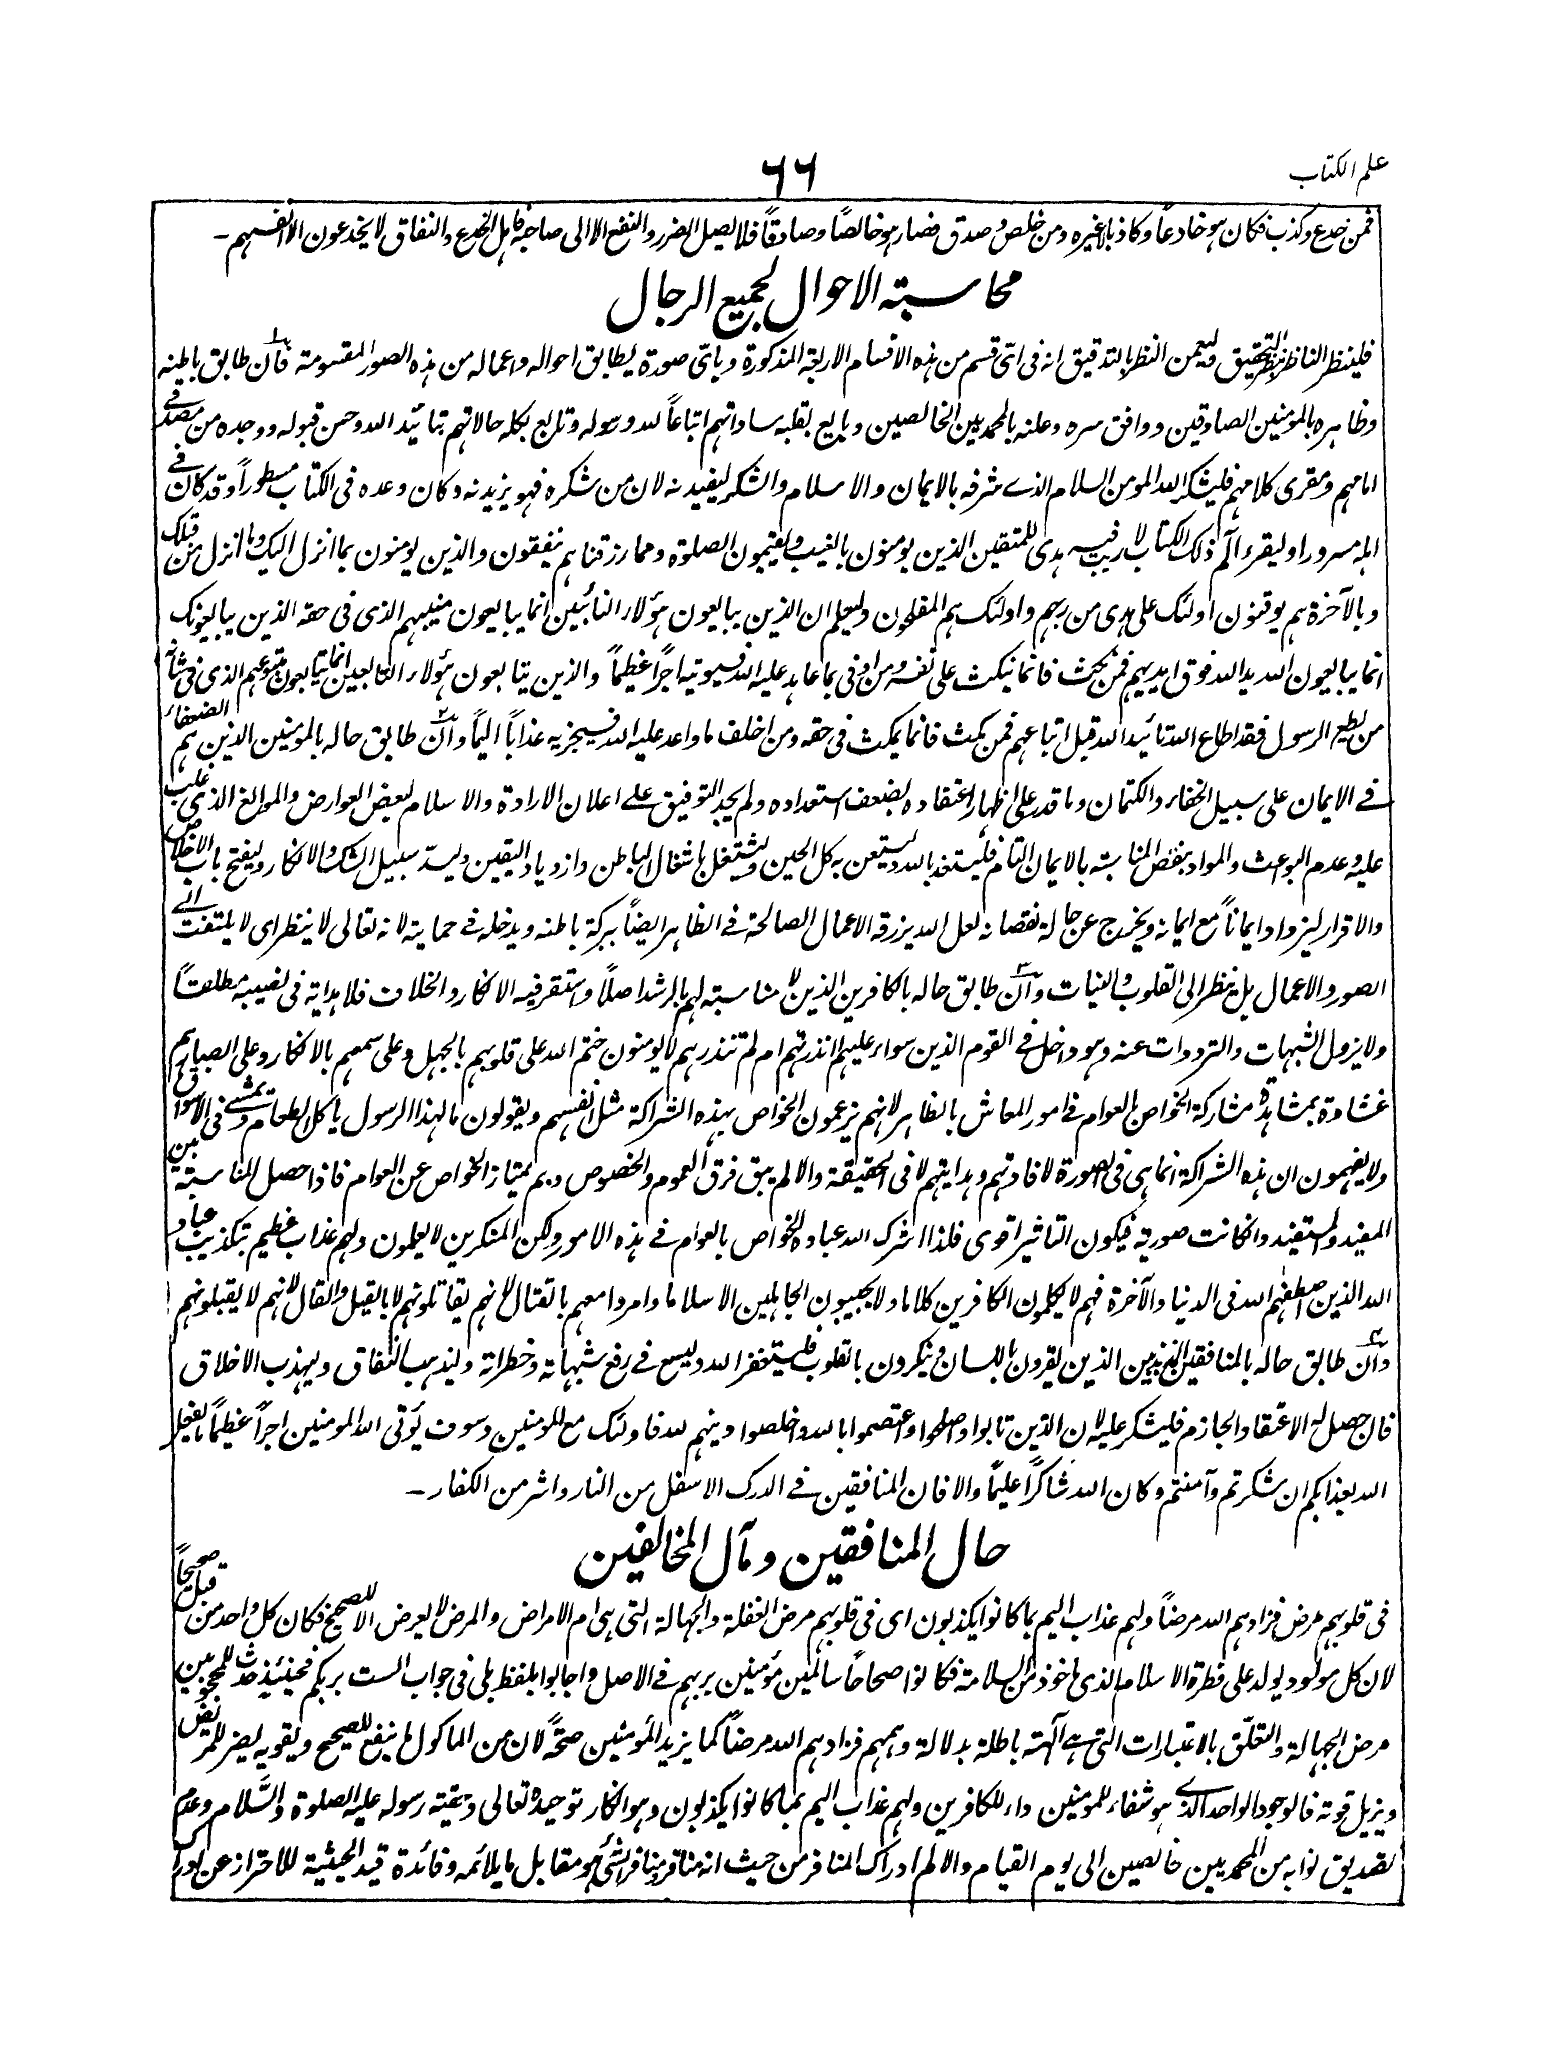 علم الكتاب
٦٦
فمن خدع وكذب فكان هو خادعاً وكاذبا لاغيره ومن خلص وصدق فصار هو خالصًا وصادقاً فلا يصل الضرر والنفع الا الى صاحبه قابل الخدع والنفاق لا يخدعون الا انفسهم -
محاسبته الاحوال لجميع الرجال
فلينظر الناظر بنظر التحقيق وليمعن النظر بالتدقيق انه فى اى قسم من هذه الاقسام الاربعة المذكورة وباى صورة يطابق احواله واعماله من هذه الصور المقسومة فان طابق باطنه
وظاهره بالمومنين الصادقين ووافق سره وعلنه بالمحمديين الخالصين وبايع بقلبه ساداتهم اتباعاً لله ورسوله وتابع بكله حالاتهم بتائيد الله وحسن قبوله ووجده من مصدقى
امامهم ومقرى كلامهم فليشكر الله المومن السلام الذى شرفه بالايمان والاسلام والشكر ليفيد نه لان من شكره فهو يزيدنه وكان وعده فى الكتاب مسطوراً وقد كان فى
اهله مسرورا وليقرء الٓم ذلك الكتاب لا ريب فيه هدى للمتقين الذين يومنون بالغيب ويقيمون الصلوة ومما رزقناهم ينفقون والذين يومنون بما انزل اليك وما انزل من قبلك
وبالآخرة هم يوقنون اولئك على هدى من ربهم واولئك هم المفلحون وليعلم ان الذين يبايعون هؤلاء النائبين انما يبايعون منيبهم الذى فى حقه الذين يبايعونك
انما يبايعون الله يد الله فوق ايديهم فمن نكث فانما ينكث على نفسه ومن اوفى بما عاهد عليه الله فسيوتيه اجرًا عظيماً والذين يتابعون هؤلاء التابعين انما يتابعون متبوعهم الذى فى شانه
من يطع الرسول فقد اطاع الله تائيد الله قبل اتباعهم فمن يمكث فانما يمكث فى حقه ومن اخلف ما واعد عليه الله فسيجزيه عذاباً اليمًا وان طابق حاله بالمومنين الذين هم الضعفاء
فى الايمان على سبيل الخفاء والكتمان وما قدر على اظهار اعتقاده لضعف استعداده ولم يجد التوفيق على اعلان الارادة والاسلام لبعض العوارض والموانع الذى غلب
عليه وعدم البواعث والمواد بنقص المناسبته بالايمان التام فليستعذ بالله وليستعن به كل الحين وليشتغل باشغال الباطن وازدياد اليقين وليسد سبيل الشك والانكار وليفتح باب الاخلاص
والاقرار ليزداد ايماناً مع ايمانه ويخرج عن حاله نقصانه لعل الله يرزقه الاعمال الصالحة فى الظاهر ايضاً ببركة باطنه ويدخله فى حمايته لانه تعالى لا ينظر اى لا يلتفت الى
الصور والاعمال بل ينظر الى القلوب والنيات وان طابق حاله بالكافرين الذين لا مناسبته لهم بالرشد اصلاً واستقر فيه الانكار والخلاف فلا هداية فى نصيبه مطلقاً
ولا يزول الشبهات والترددات عنه وهو داخل فى القوم الذين سواء عليهم انذرتهم ام لم تنذرهم لا يومنون ختم الله على قلوبهم بالجهل وعلى سمعهم بالانكار وعلى ابصارهم
غشاوة بمشاهدة مشاركة الخواص بالعوام فى امور المعاش بالظاهر لانهم يزعمون الخواص بهذه الشراكة مثل انفسهم ويقولون ما لهذا الرسول ياكل الطعام ويمشى فى الاسواق
ولا يفهمون ان هذه الشراكة انما هى فى الصورة لافادتهم وهدايتهم لا فى الحقيقة والا لم يبق فرق العموم والخصوص وبم يمتاز الخواص عن العوام فاذا حصل المناسبته بين
المفيد والمستفيد وان كانت صورية فيكون التاثير اقوى فلذا اشرك الله عباده الخواص بالعوام فى هذه الامور ولكن المنكرين لا يعلمون ولهم عذاب عظيم بتكذيب عباد
الله الذين اصطفهم الله فى الدنيا والآخرة فهم لا يكلمون الكافرين كلاما ولا يجيبون الجاهلين الا سلاما وامروا معهم بالقتال لانهم يقاتلونهم لا بالقيل والقال لانهم لا يقبلونهم
وان طابق حاله بالمنافقين المذبذبين الذين يقرون باللسان وينكرون بالقلوب فليستغفر الله وليسع فى رفع شبهاته وخطراته وليذهب النفاق وليهذب الاخلاق
فان حصل له الاعتقاد الجازم فليشكر عليه لان الذين تابوا واصلحوا واعتصموا بالله واخلصوا دينهم لله فاولئك مع المومنين وسوف يؤتى الله المومنين اجراً عظيماً ما يفعل
الله بعذابكم ان شكرتم وآمنتم وكان الله شاكرًا عليمًا والا فان المنافقين فى الدرك الاسفل من النار واشر من الكفار -
حال المنافقين ومآل المخالفين
فى قلوبهم مرض فزادهم الله مرضاً ولهم عذاب اليم بما كانوا يكذبون اى فى قلوبهم مرض الغفلة والجهالة التى هى ام الامراض والمرض لا يعرض الا للصحيح فكان كل واحد من قبل صحيحاً
لان كل مولود يولد على فطرة الاسلام الذى ماخوذ من السلامة فكانوا صحاحاً سالمين مؤمنين بربهم فى الاصل واجابوا بلفظ بلى فى جواب الست بربكم فحينئيذ حدث للمحجوبين
مرض الجهالة والتعلّق بالاعتبارات التى هى آلهته باطلة بدلالة وهمهم فزادهم الله مرضاً كما يزيد المؤمنين صحةً لان من الماكول ما ينفع للصحيح ويقويه يضر للمريض
ويزيل قوته فالوجود الواحد الذى هو شفاء للمومنين داء للكافرين ولهم عذاب اليم بما كانوا يكذبون وهو انكار توحيده تعالى وبعثته رسوله عليه الصلوة والسَّلام وعدم
تصديق نوابه من المحمديين خالصين الى يوم القيام والالم ادراك المنافر من حيث انه منافر ومنافر الشئ هو مقابل ما يلائمه وفائدة قيد الحيثية للاحتراز عن ادراك